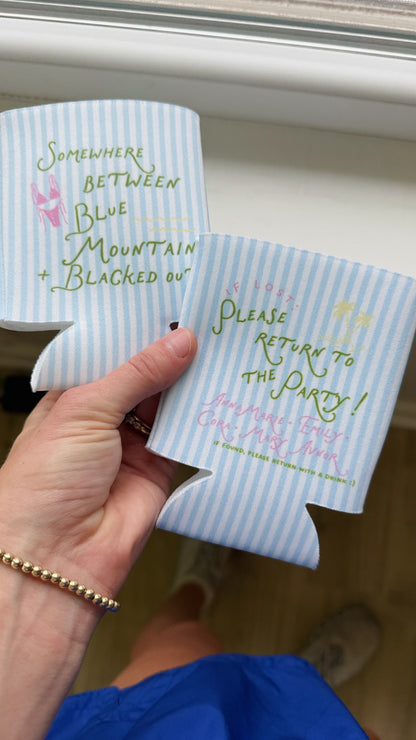 Somewhere
between
Blue
Mountain
+ Blacked out
If lost,
Please
return to
the Party!
AnnaMarie • Emily •
Cora • Mary Aynor
If found, please return with a drink :)